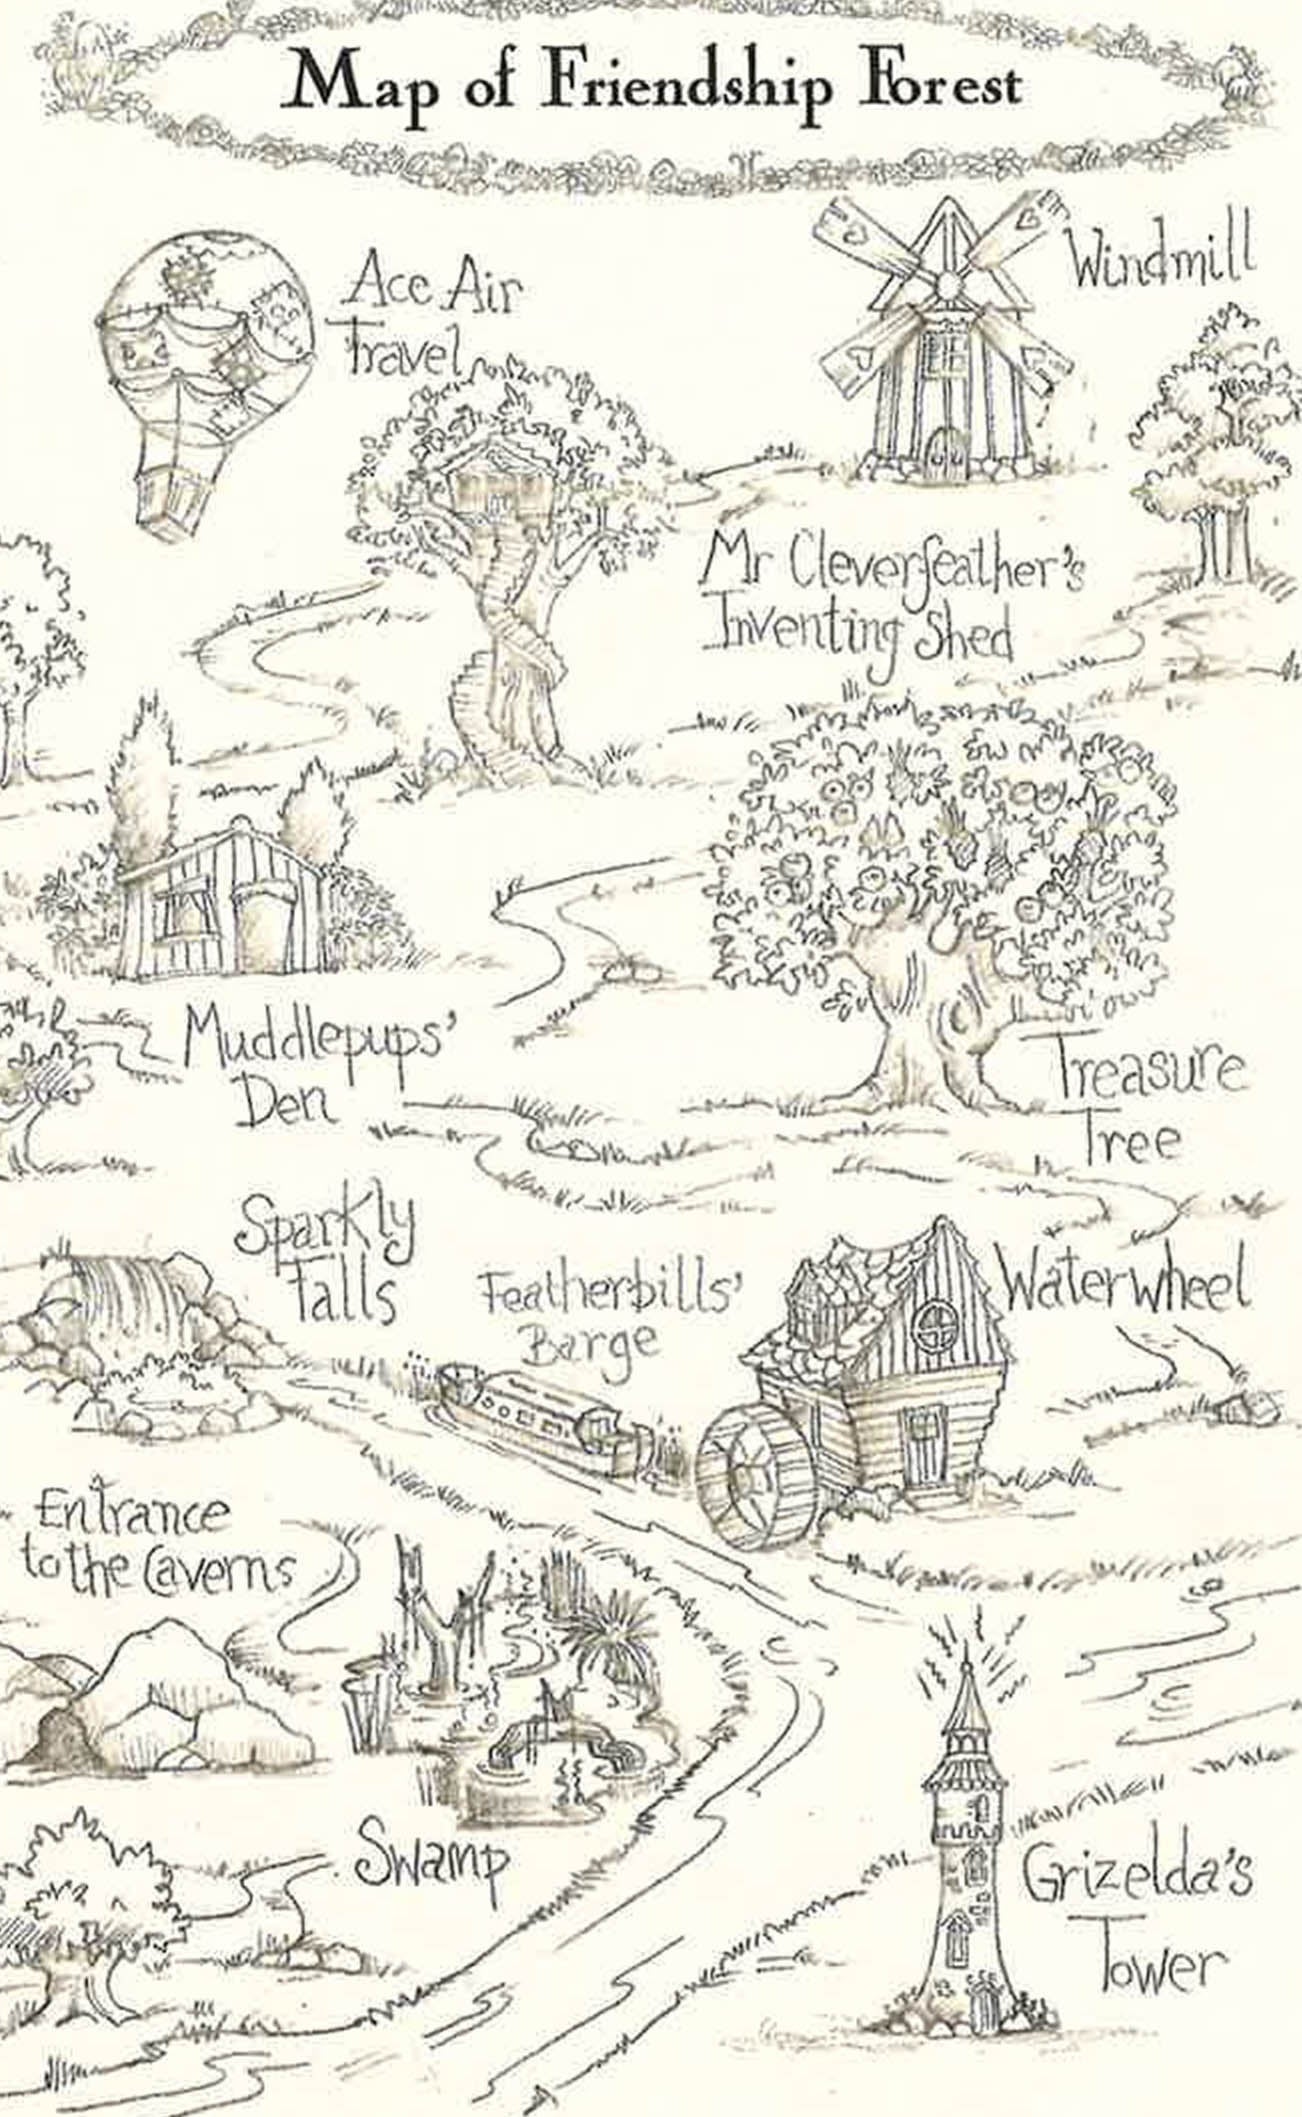 Map of Friendship Forest
Ace Air
Travel
Windmill
Mr Cleverfeather's
Inventing Shed
Muddlepups'
Den
Treasure
Tree
Sparkly
Falls
Featherbills'
Barge
Waterwheel
Entrance
to the Caverns
Swamp
Grizelda's
Tower